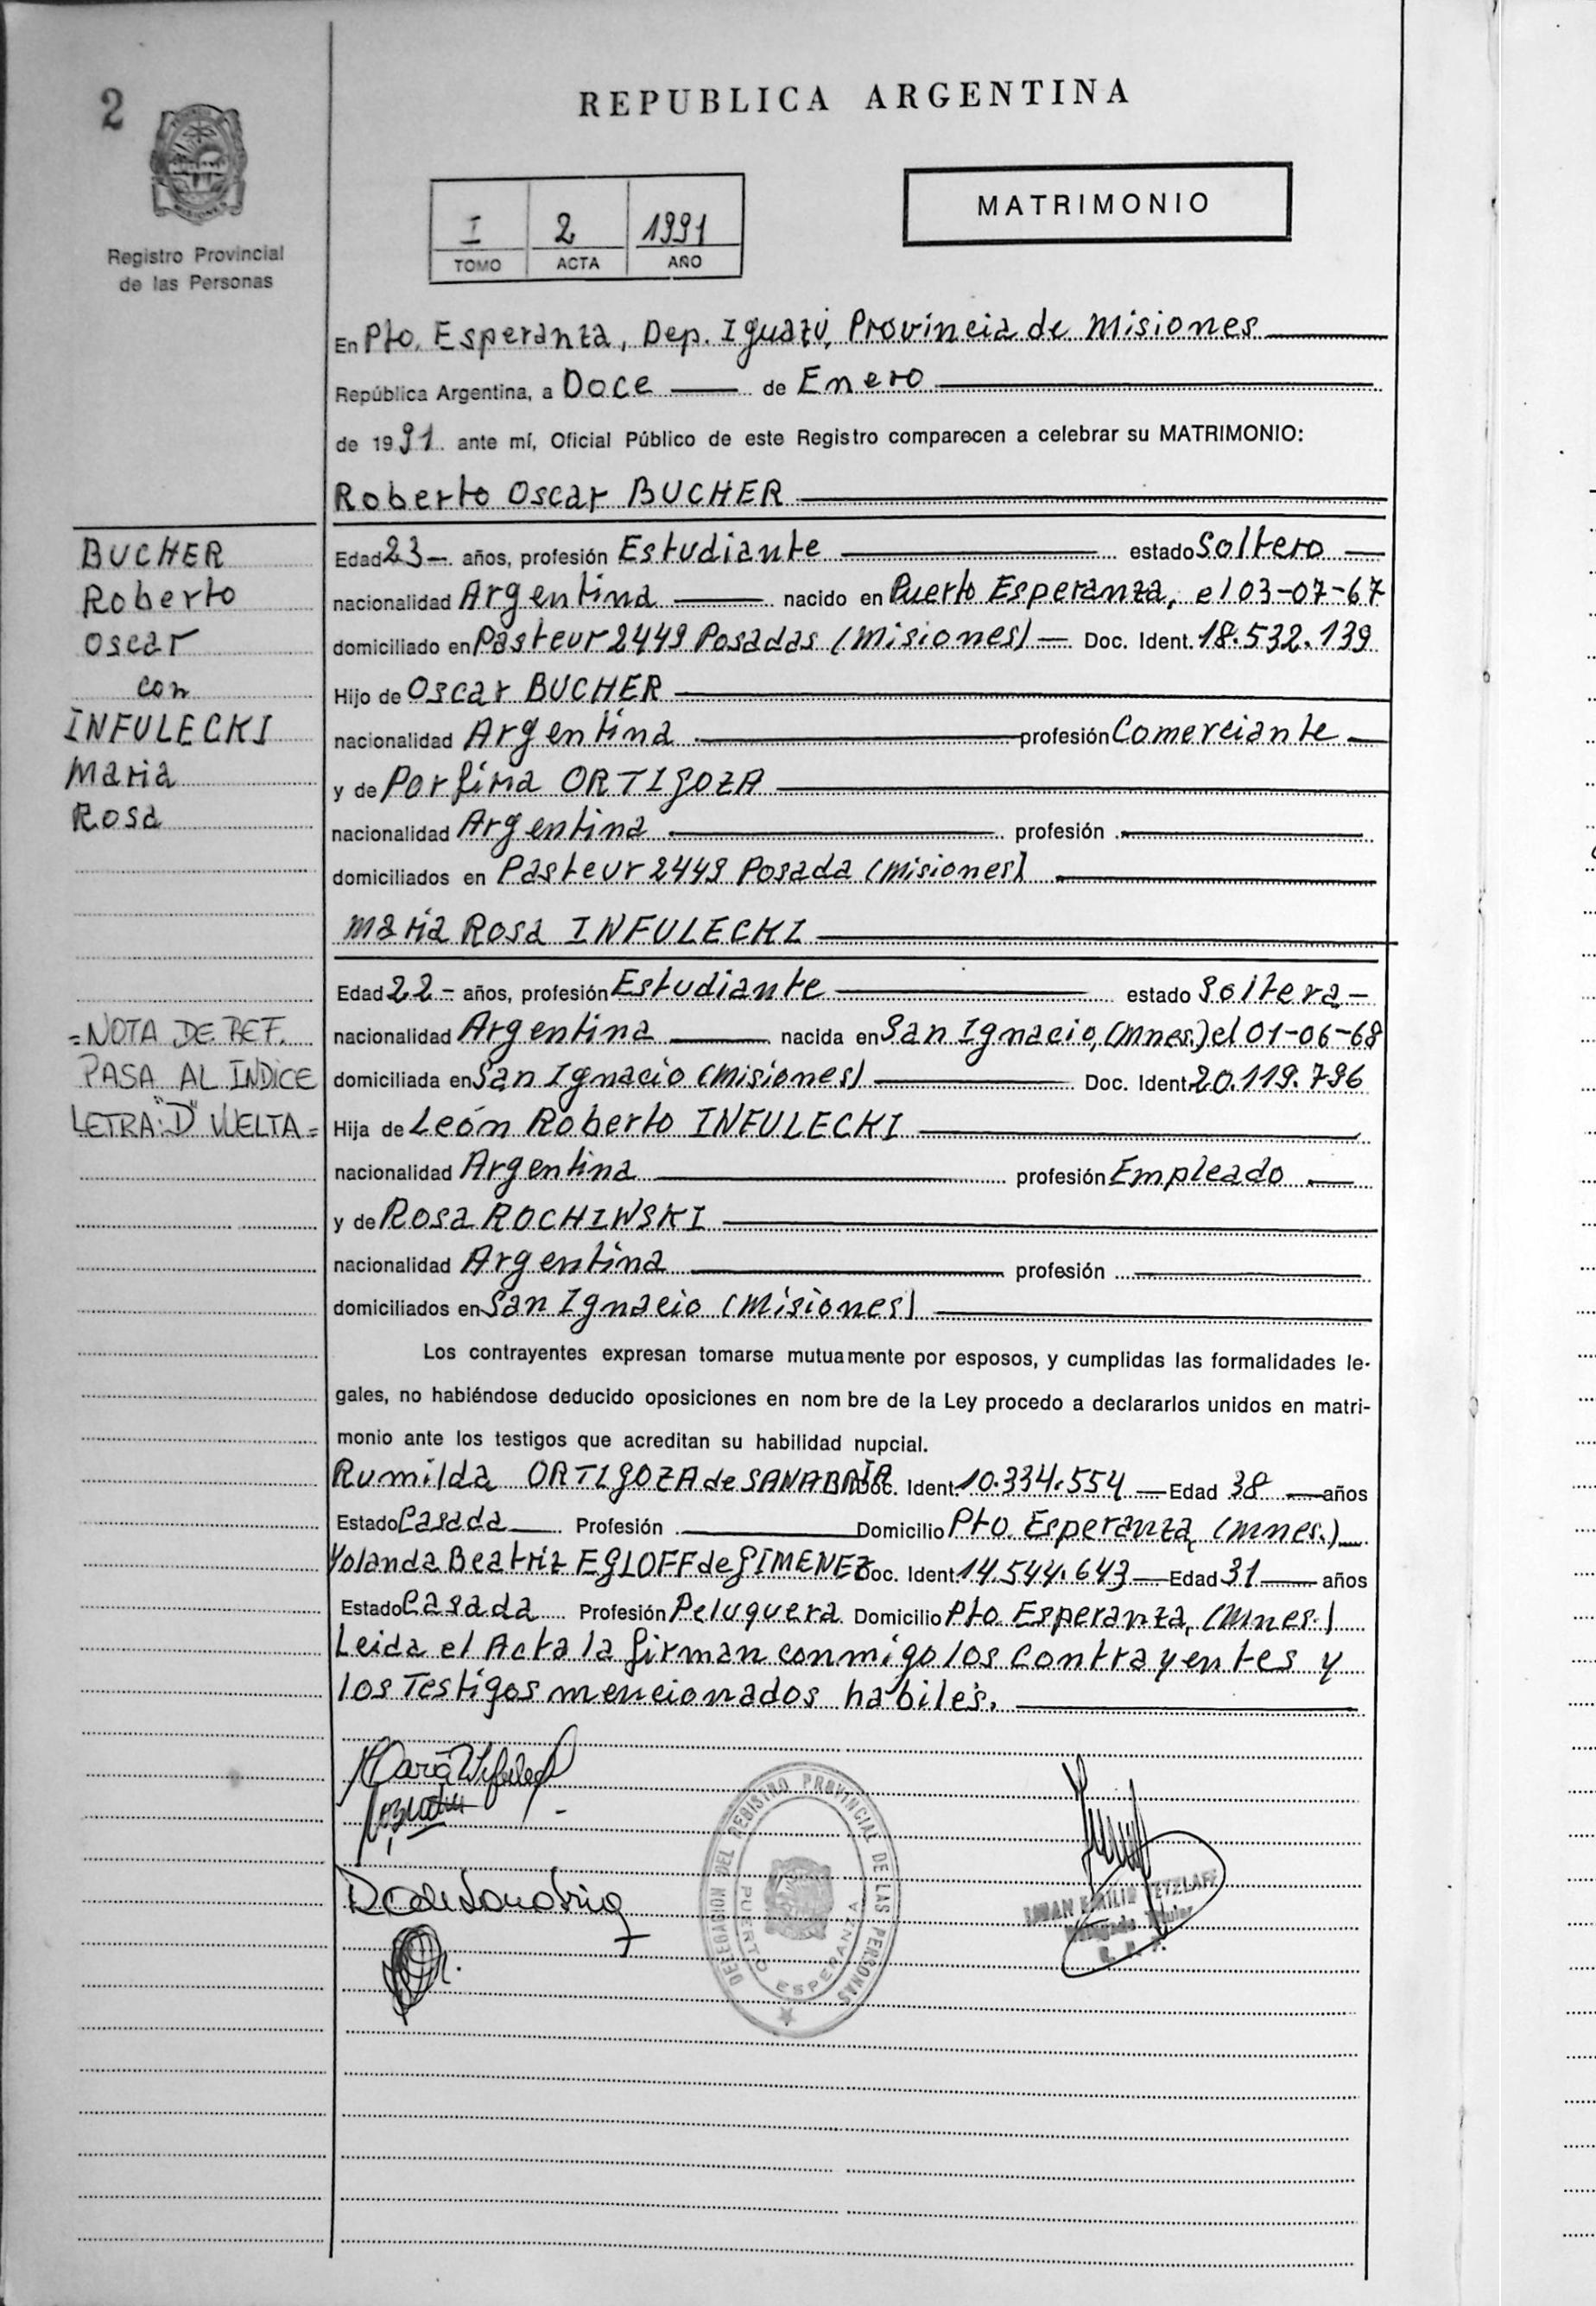 2
REPUBLICA ARGENTINA
MISIONES
Registro Provincial
de las Personas
I 2 1991
TOMO ACTA AÑO
MATRIMONIO
En Pto. Esperanza, Dep. Iguazú, Provincia de Misiones
República Argentina, a Doce de Enero
de 1991 ante mí, Oficial Público de este Registro comparecen a celebrar su MATRIMONIO:
Roberto Oscar BUCHER
BUCHER
Roberto
Oscar
con
INFULECKI
Maria
Rosa
Edad 23- años, profesión Estudiante estado Soltero
nacionalidad Argentina nacido en Puerto Esperanza, el 03-07-67
domiciliado en Pasteur 2449 Posadas (Misiones) Doc. Ident. 18.532.139
Hijo de Oscar BUCHER
nacionalidad Argentina profesión Comerciante
y de Porfiria ORTIGOZA
nacionalidad Argentina profesión
domiciliados en Pasteur 2449 Posada (Misiones)
Maria Rosa INFULECKI
Edad 22- años, profesión Estudiante estado Soltera-
nacionalidad Argentina nacida en San Ignacio, (Mnes.) el 01-06-68
domiciliada en San Ignacio (Misiones) Doc. Ident. 20.119.796
Hija de León Roberto INFULECKI
nacionalidad Argentina profesión Empleado
y de Rosa ROCHIWSKI
nacionalidad Argentina profesión
domiciliados en San Ignacio (Misiones)
=NOTA DE REF.
PASA AL INDICE
LETRA: "D" VUELTA=
Los contrayentes expresan tomarse mutuamente por esposos, y cumplidas las formalidades le-
gales, no habiéndose deducido oposiciones en nom bre de la Ley procedo a declararlos unidos en matri-
monio ante los testigos que acreditan su habilidad nupcial.
Rumilda ORTIGOZA de SANABRIA Doc. Ident. 10.334.554 Edad 38 años
Estado Casada Profesión Domicilio Pto. Esperanza (Mnes.)
Yolanda Beatriz EGLOFF de GIMENEZ Doc. Ident. 14.544.643 Edad 31 años
Estado Casada Profesión Peluquera Domicilio Pto. Esperanza, (Mnes.)
Leida el Acta la firman conmigo los contrayentes y
los Testigos mencionados habiles.
DELEGACION DEL REGISTRO PROVINCIAL DE LAS PERSONAS
PUERTO ESPERANZA